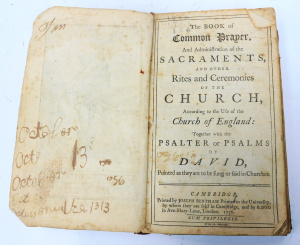 October
Octo 13
October 1756
The BOOK of
Common Prayer,
And Administration of the
SACRAMENTS,
AND OTHER
Rites and Ceremonies
OF THE
CHURCH,
According to the Use of the
Church of England:
Together with the
PSALTER or PSALMS
OF
DAVID,
Pointed as they are to be sung or said in Churches.
CAMBRIDGE,
Printed by JOSEPH BENTHAM Printer to the University,
by whom they are sold in Cambridge, and by
in Ave-Mary-Lane, London.
CUM PRIVILEGIO.